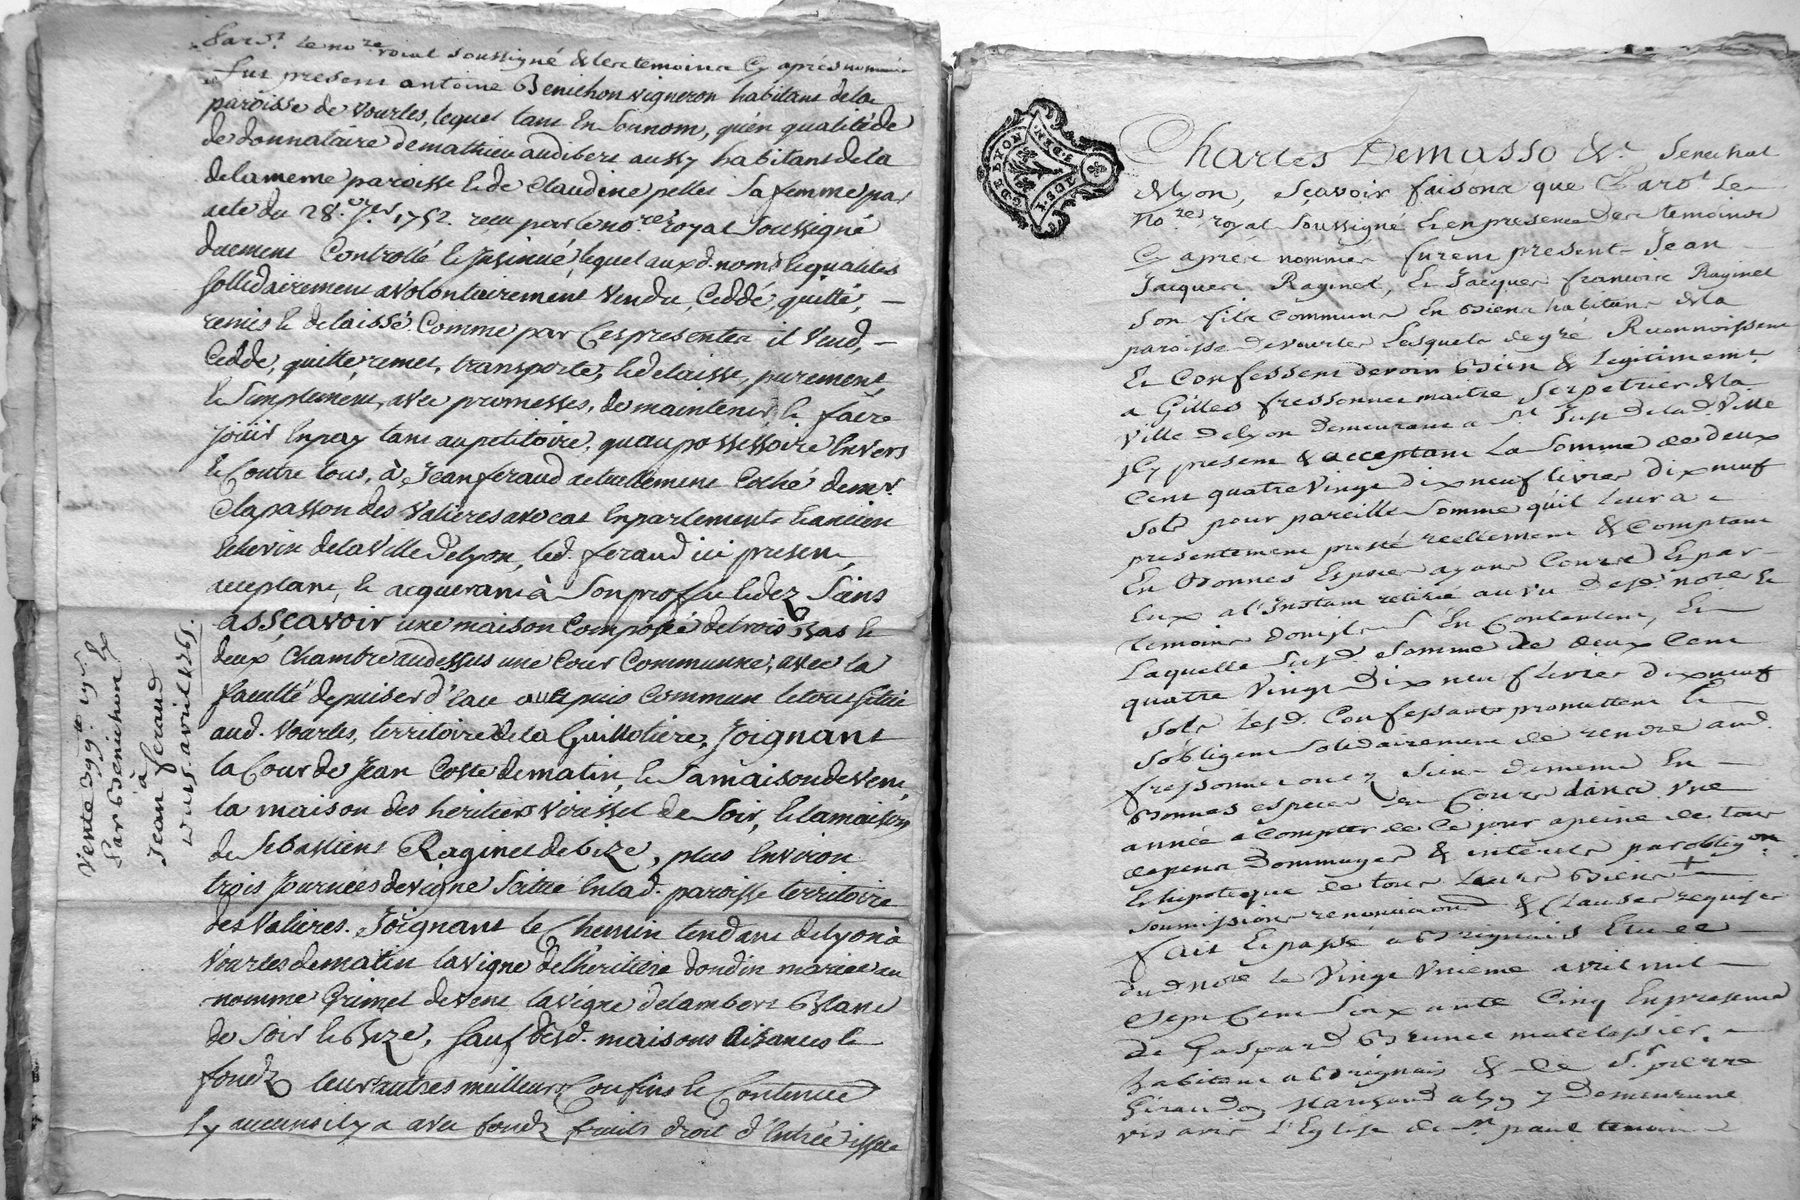 Pardt. le nore. roial soussigné & les temoins Cy après nommés
fut present antoine Benichon vigneron habitant de la
paroisse de vourles, lequel tant En son nom, qu'en qualité de
de donnataire de mathieu audibert aussy habitant de la
de la meme paroisse & de Claudine pelles sa femme par
acte du 28e. 7bre 1752. recu par le nore. royal soussigné
duement Controllé & Insinué, lequel aux d. noms & qualités
sollidairement a volontairement vendu, Ceddé, quitté, —
remis & delaissé. Comme par Ces presentes il vend, —
Cedde, quitte, remet, transporte, & delaisse, purement,
& simplement, avec promesses, de maintenir, & faire
jouir En paix tant au petitoire, qu'au possessoire Envers
& Contre tous, à Jean feraud actuellement Coché de mr.
Clapasson des Valieres avocat En parlement & ancien
Echevin de la Ville de lyon, led. feraud ici present,
acceptant, & acquerant à son proffit & des Siens
assçavoir une maison Composée de trois Bas &
deux Chambre audessus une Cour Commune, avec la
faculté de puiser d'Eau au puis Commun le tout sittué
aud. Vourles, territoire de la Guillotiere, Joignant
la Cour de Jean Coste de matin, & sa maison de vent,
la maison des heritiers Virisset de soir, & la maison
de Sebastient Raginet de bize, plus Environ
trois Journées de vigne sittué En lad. paroisse territoire
des Valieres. Joignant le Chemin tendant de lyon à
Vourles de matin la vigne de l'heritiere dondin mariée au
nomme Grimet de vent la vigne de lambert Blanc
de soir & Bize, sauf desd. maisons aisances &
fondz leurs autres meilleurs Confins & Contenue
sy aucuns il y a avec fondz fruits droit d'Entrée issue
Vente 399tt 19s.
Par Benichon
à
Jean feraud
du 15. avril 1765.
G DE LYON
Charles Demasso &c. Senechal
de lyon, sçavoir faisons que Pardt. Le
Nore. royal soussigné & en presence des temoins
Cy aprés nommés furent present Jean
Jacques Raginet, & Jacques francois Raginet
son fils Communs En Biens habitans de la
paroisse de vourles Lesquels de gré Reconnoissent
Et Confessent devoir Bien & Legitimement
a Gilles fressonnet maitre Serpetrier de la
Ville de lyon demeurant a St. Just de lad. Ville
Icy present & acceptant La Somme de deux
Cent quatre vingt dix neuf Livres dix neuf
sols pour pareille Somme qu'il Leur a
presentement presté reellement & Comptant
En Bonnes Especes ayant Cours & par
Eux a l'Instant retiré au vu desd. nore. &
temoins dont ils s'En Contentent, Et
Laquelle susd. Somme de deux Cent
quatre vingt dix neuf Livres dix neuf
sols lesd. Confessants promettent &
s'obligent solidairement de rendre aud.
fressonnet ou ez siens de meme En
Bonnes especes de Cours dans vne
année a Compter de Ce jour a peine de tous
depens dommages & interets par obligon.
& hipoteque de tous Leurs Biens +
soumissions renonciaons & Clauses requises
fait & passé a Brignais Etude
dud nore. le Vingt Vnieme avril mil
Sept Cent Soixante Cinq En presence
de Gaspard Brunet matelassier
habitant a Brignais & de Sr. pierre
Giraudon Marchand a lyon y demeurant
vis avis L'Eglise de St. paul temoins